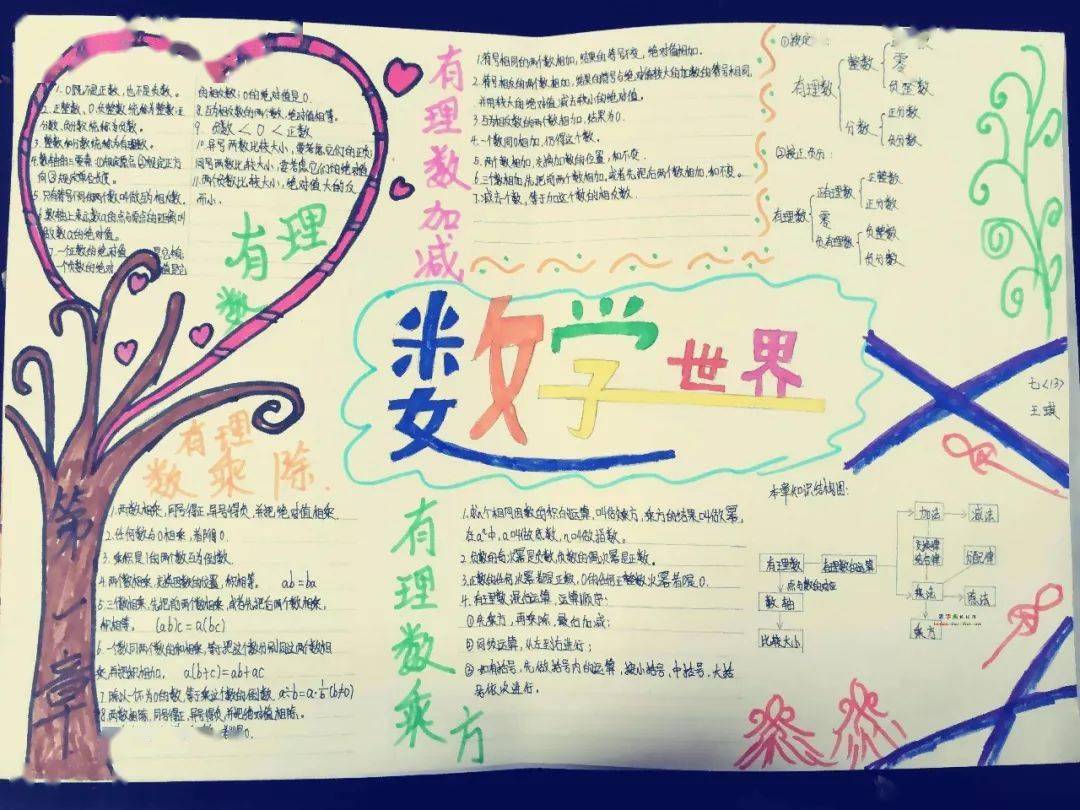 1. 0既不是正数，也不是负数。
2. 正整数、0、负整数统称为整数，正
分数、负分数统称为分数。
3. 整数和分数统称为有理数。
向③规定单位长度。
5. 只有符号不同的两个数叫做互为相反数。
6. 数轴上表示数a的点与原点的距离叫
做数a的绝对值。
的相反数；0的绝对值是0.
8. 互为相反数的两个数，绝对值相等。
9. 负数<0<正数
10. 异号两数比较大小，要考虑它们的正负；
同号两数比较大小，要考虑它们的绝对值
11. 两负数比较大小，绝对值大的反
而小。
有理数
有理数加减
1. 符号相同的两个数相加，结果的符号不变，绝对值相加。
2. 符号相反的两个数相加，结果的符号与绝对值较大的加数的符号相同，
并用较大的绝对值减去较小的绝对值。
3. 互为相反数的两个数相加，结果为0.
4. 一个数同0相加，仍得这个数。
5. 两个数相加，交换加数的位置，和不变.
6. 三个数相加，先把前两个数相加，或者先把后两个数相加，和不变。
7. 减去一个数，等于加这个数的相反数.
有理数
整数
零
负整数
分数
正分数
负分数
②按正负分：
有理数
正有理数
正整数
正分数
零
负有理数
负整数
负分数
数学世界
七(13)
第一章
有理数乘除
1. 两数相乘，同号得正，异号得负，并把绝对值相乘.
2. 任何数与0相乘，都得0.
3. 乘积是1的两个数互为倒数.
4. 两个数相乘，交换因数的位置，积相等。 ab=ba
5. 三个数相乘，先把前两个数相乘，或者先把后两个数相乘，
积相等。 (ab)c=a(bc)
6. 一个数同两个数的和相乘，等于把这个数分别同这两个数相
乘，再把积相加。 a(b+c)=ab+ac
7. 除以一个不为0的数，等于乘这个数的倒数. a÷b=a·1/b(b≠0)
8. 两数相除，同号得正，异号得负，并把绝对值相除.
都得0.
有理数乘方
1. 求n个相同因数的积的运算，叫做乘方，乘方的结果叫做幂
在aⁿ中，a叫做底数，n叫做指数。
2. 负数的奇次幂是负数，负数的偶次幂是正数。
3. 正数的任何次幂都是正数，0的任何正整数次幂都是0.
4. 有理数混合运算，运算顺序：
①先乘方，再乘除，最后加减；
②同级运算，从左到右进行；
③如有括号，先做括号内的运算，按小括号、中括号、大括
号依次进行。
本章知识结构图：
有理数
有理数的运算
数轴
比较大小
加法
减法
交换律
结合律
分配律
乘法
除法
乘方